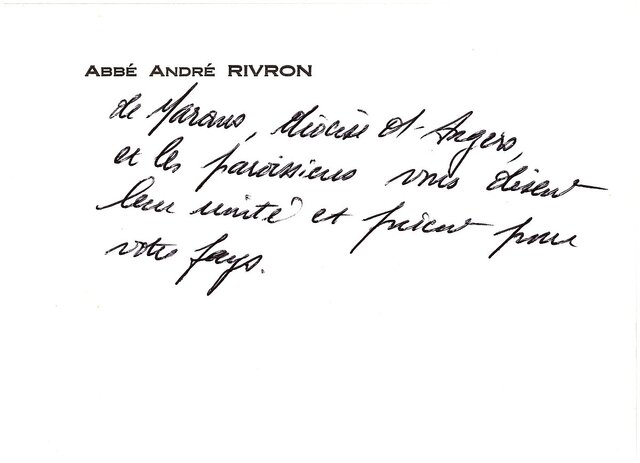 ABBÉ ANDRÉ RIVRON
de Marans, diocèse d'Angers,
et les paroissiens vous disent
leur unité et prient pour
votre pays.